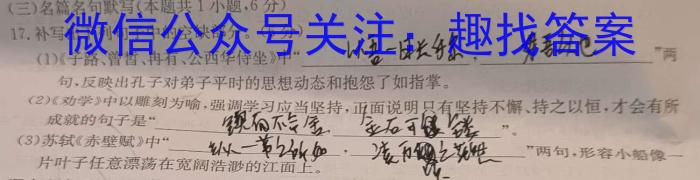 (三)名篇名句默写(本题共1小题,6分)
17.补写
微信公众号关注:趣找答案
(1)《子路、曾皙、冉有、公西华侍坐》中“以吾一日长乎尔,”两
句,反映出孔子对弟子平时的思想动态和抱怨了如指掌。
(2)《劝学》中以雕刻为喻,强调学习应当坚持,正面说明只有坚持不懈、持之以恒,才会有所
成就的句子是“锲而不舍,金石可镂”。
(3)苏轼《赤壁赋》中“纵一苇之所如,凌万顷之茫然”两句,形容小船像一
片叶子任意漂荡在宽阔浩渺的江面上。